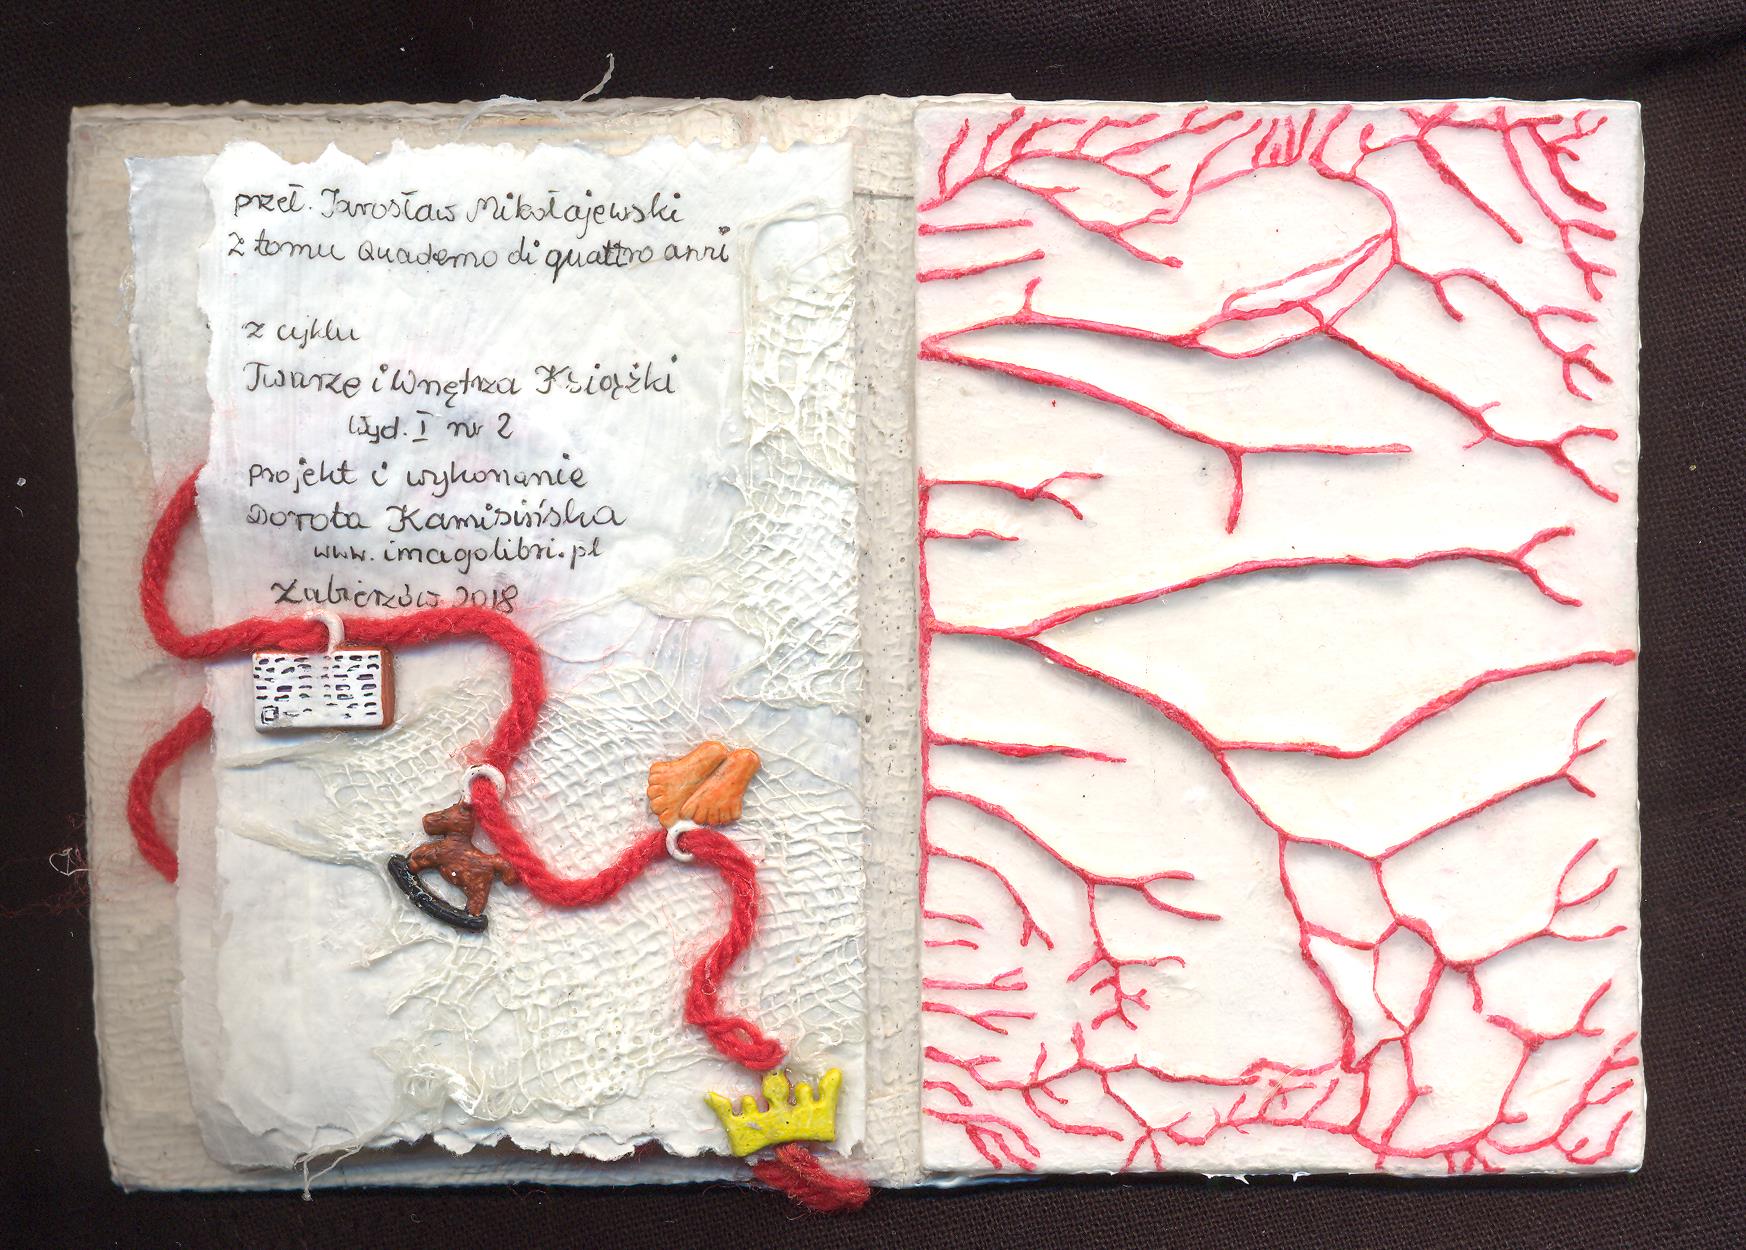 przeł. Jarosław Mikołajewski
z tomu Quaderno di quattro anni
z cyklu
Twarze i Wnętrza Książki
Wyd. I nr 2
projekt i wykonanie
Dorota Kamisińska
www.imagolibri.pl
Zabierzów 2018